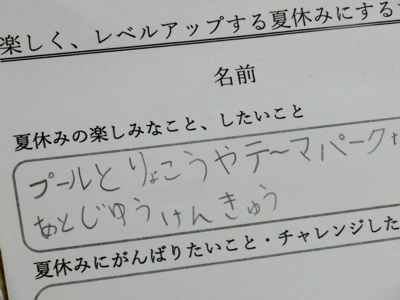 楽しく、レベルアップする夏休みにする
名前
夏休みの楽しみなこと、したいこと
プールとりょこうやテーマパーク
あとじゆうけんきゅう
夏休みにがんばりたいこと・チャレンジした